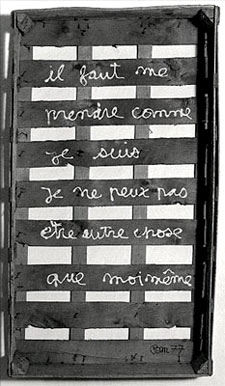 il faut me
prendre comme
je suis
je ne peux pas
être autre chose
que moi même
Ben 77